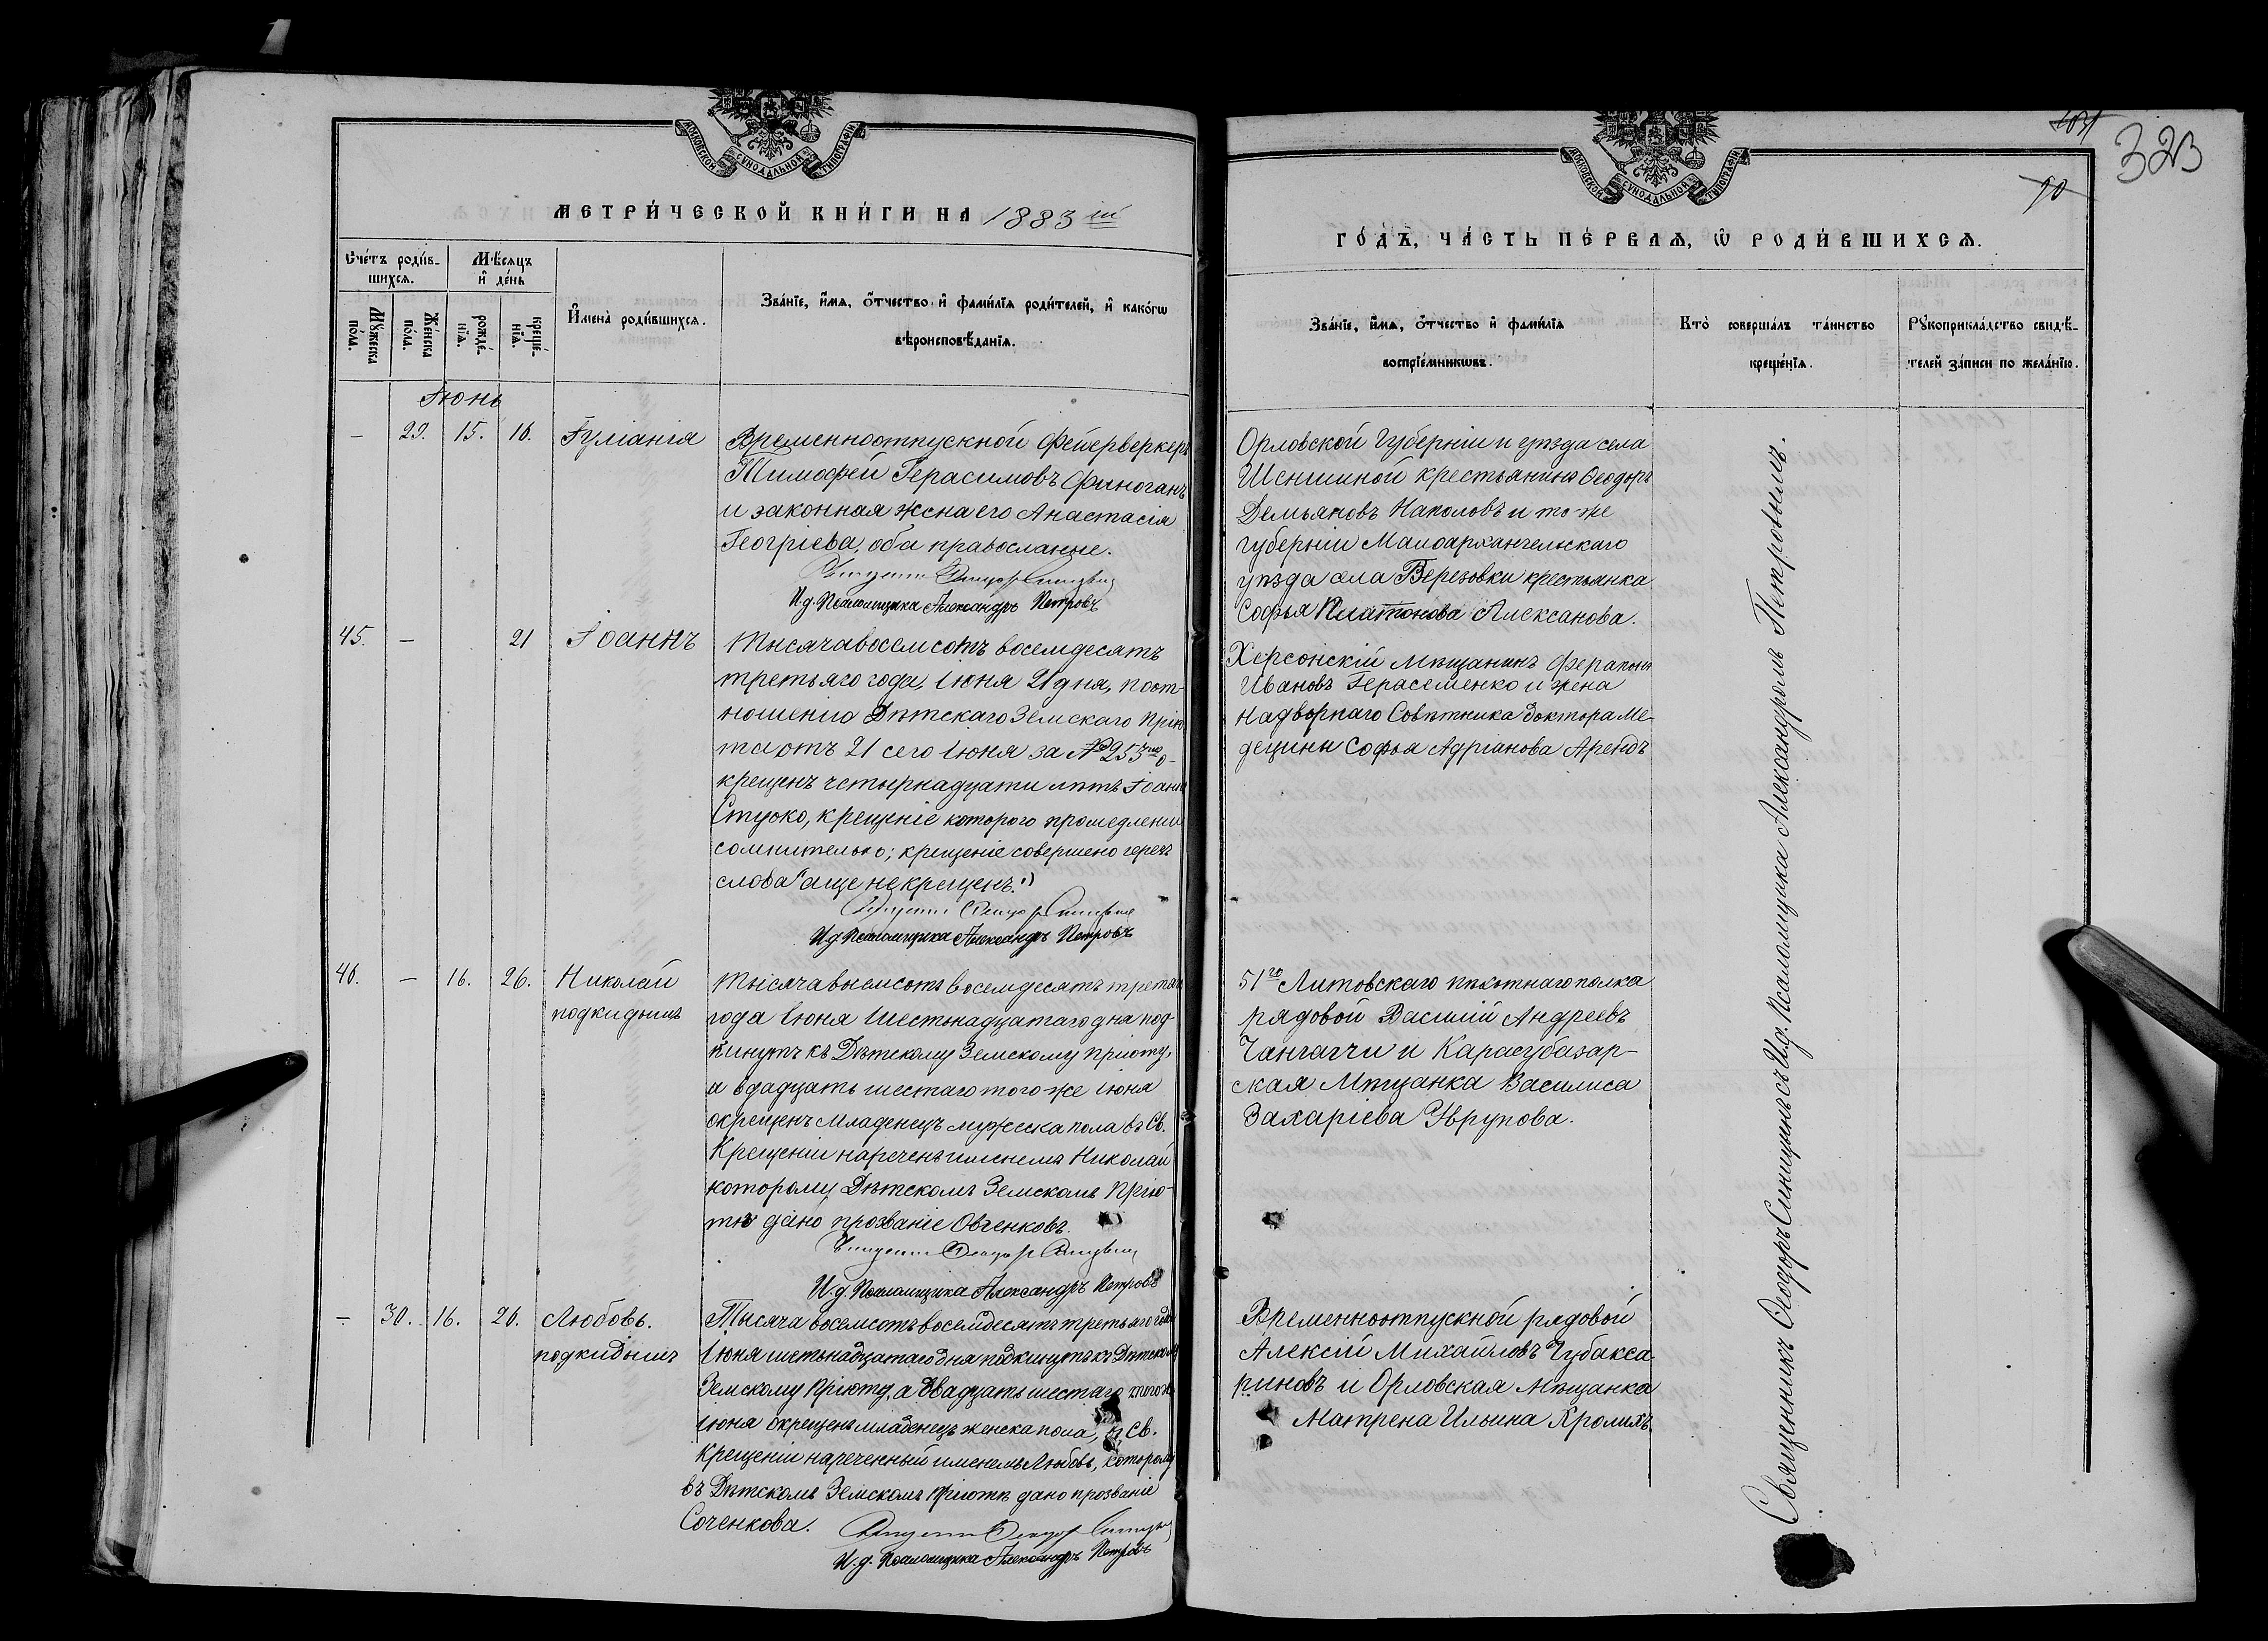 МОСКОВСКОЙ СѴНОДАЛЬНОЙ ТИПОГРАФІИ
МЕТРИ́ЧЕСКОЙ КНИ́ГИ НА 1883 ій
Сче́тъ роди́в-
шихсѧ.
Мѣ́сѧцъ
и҆ де́нь
Мꙋ́жеска
по́ла.
Же́нска
по́ла.
рожде́-
нїѧ.
креще́-
нїѧ.
И҆мена̀ роди́вшихсѧ.
Зва́нїе, и҆́мѧ, ѻ҆́тчество и҆ фами́лїѧ роди́телей, и҆ како́гѡ
вѣроисповѣ́данїѧ.
Іюнь
— 29. 15. 16. Іуліанія
Временноотпускной Фейерверкеръ
Тимофей Герасимовъ Финоганъ
и законная жена его Анастасія
Георгіева, оба православные.
И.д. Псаломщика Александръ Петровъ
45. — 21 Іоаннъ
Тысяча восемсотъ восемдесятъ
третьяго года, Іюня 21 дня, по от-
ношенію Дѣтскаго Земскаго Прію-
та отъ 21 сего Іюня за № 253мъ о-
крещенъ четырнадцати лѣтъ Іоаннъ
Стуоко, крещеніе которого промедлени
сомнительно; крещеніе совершено черезъ
слова "аще не крещенъ."
И.д. Псаломщика Александръ Петровъ
46. — 16. 26. Николай
подкидышъ
Тысяча восемсотъ восемдесятъ третьяго
года Іюня Шестьнадцатаго дня под-
кинутъ къ Дѣтскому Земскому пріюту,
а вдадцать шестаго того же Іюня
окрещенъ Младенецъ мужеска пола въ Св.
Крещеніи нареченъ именемъ Николай
которому Дѣтскомъ Земскомъ Прію-
тѣ дано прозваніе Овченковъ
И.д. Псаломщика Александръ Петровъ
— 30. 16. 26. Любовь.
подкидышъ
Тысяча восемсотъ восемдесятъ третьяго года
Іюня шестьнадцатаго дня подкинутъ къ Дѣтскому
Земскому Пріюту, а двадцать шестаго того же
Іюня окрещенъ младенецъ женска пола, въ Св.
Крещеніи нареченный именемъ Любовь, которому
въ Дѣтскомъ Земскомъ Пріютѣ дано прозваніе
Соченкова.
И.д. Псаломщика Александръ Петровъ
МОСКОВСКОЙ СѴНОДАЛЬНОЙ ТИПОГРАФІИ
323
90
ГО́ДЪ, ЧА́СТЬ ПЕ́РВАѦ, Ѡ҆ РОДИ́ВШИХСѦ.
Зва́нїе, и҆́мѧ, ѻ҆́тчество и҆ фами́лїѧ
воспрїе́мникѡвъ.
Кто̀ соверша́лъ та́инство
креще́нїѧ.
Рꙋкоприкла́дство свидѣ́-
телей за́писи по жела́нїю.
Орловской Губерніи и уѣзда села
Шеншиной крестьянинъ Ѳеодоръ
Демьяновъ Наполовъ и то-же
губерніи Малоархангельскаго
уѣзда села Березовки крестьянка
Софья Платонова Алексанова.
Херсонскій Мѣщанинъ Ферапонъ
Ивановъ Герасеменко и жена
Надворнаго Совѣтника Доктора Ме-
децины Софья Адріанова Арендъ
51го Литовскаго пѣхотнаго полка
рядовой Василій Андреевъ
Чангаччи и Карасубазар-
ская Мѣщанка Василиса
Захаріева Уврупова.
Временноотпускной рядовой
Алексій Михайловъ Чубакса-
риновъ и Орловская Мѣщанка
Матрена Ильина Кролихъ
Священникъ Ѳеодоръ Синицынъ съ И.д. Псаломщика Александромъ Петровымъ.